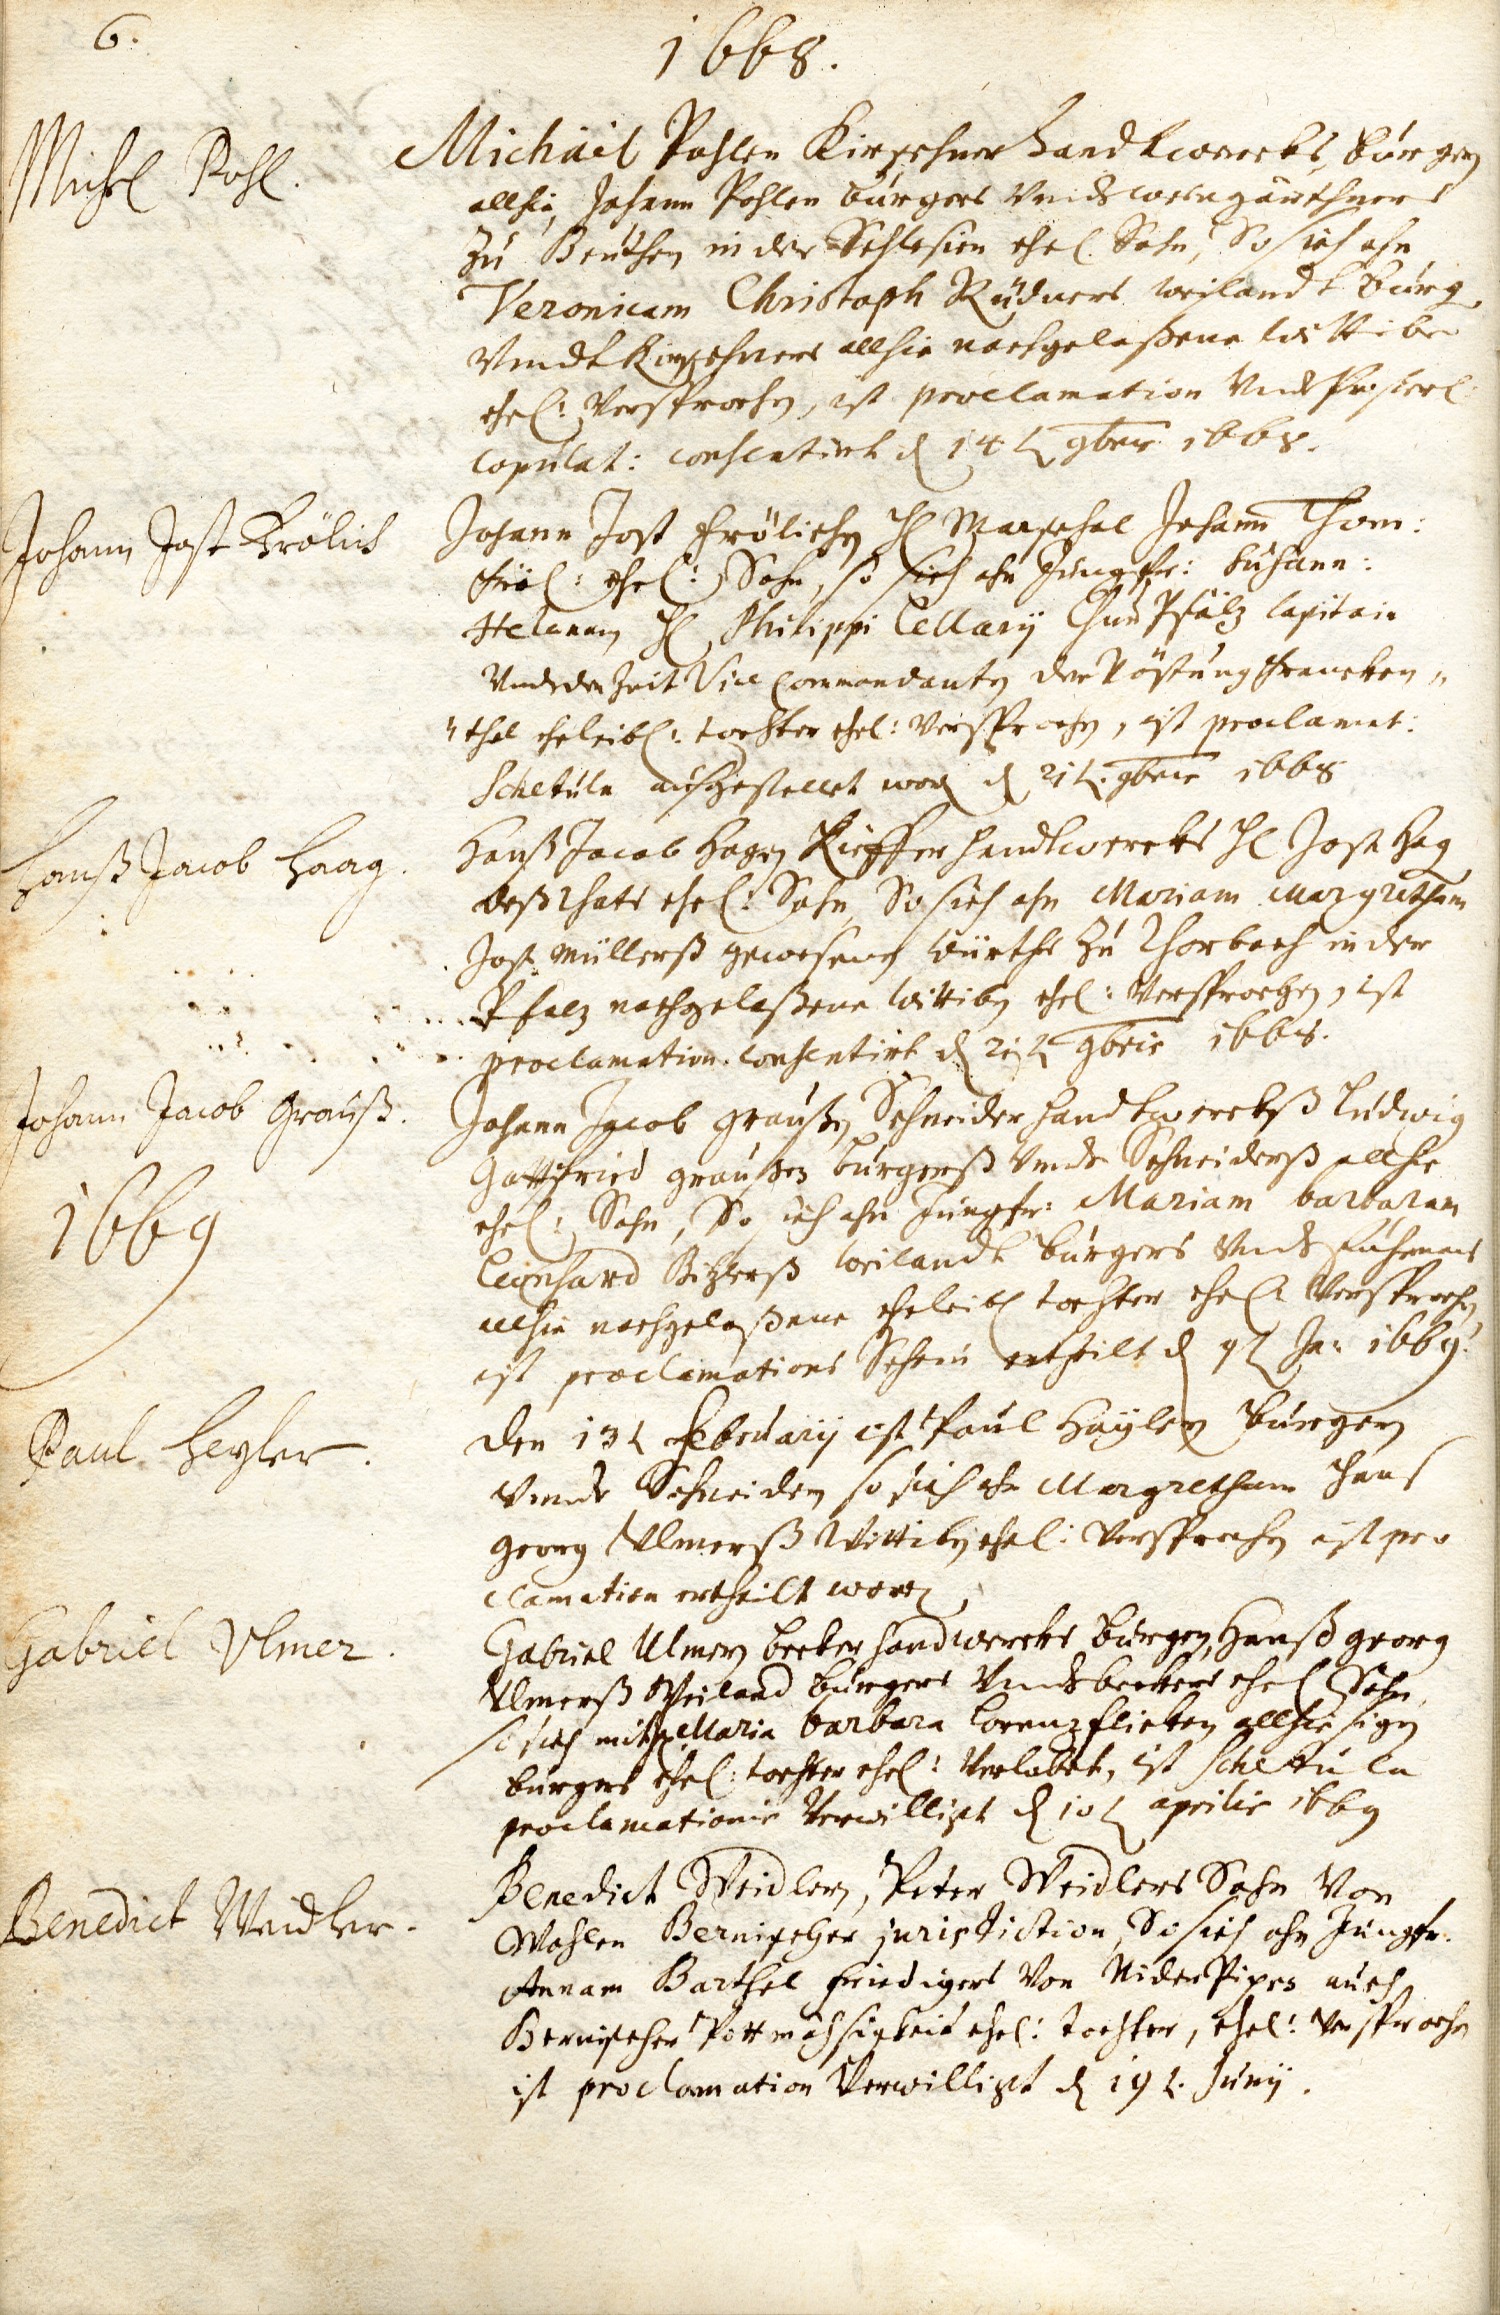 6.
1668.
Michel Pohl.
Michäel Pohlen Kirschner handtwercks, bürgern
allhie, Johann Pohlen bürgers Vndt weingärthners
zu Beuthen in der Schlesien ehel. Sohn, So sich ahn
Veronicam Christoph Rüdners weylandt bürg.
Vndt Kirschners allhie nachgelaßene Wittibe
ehel: Versprochen, ist proclamation Vndt
copulat: consentirt d 14t 9bris 1668.
Johann Jost Frölich
Johann Jost Frölichen H Marschal Johann Thom:
Fröl: ehel: Sohn, so sich ahn Jungfr: Susann:
Helenam H Philippi Cellarij ChurPfältz Capitain
Vndt der Zeit Vice Commandanten der Vöstung Francken„
„thal eheleibl: tochter ehel: Versprochen, ist proclamat:
Schetula außgestellet word d 21t. 9bris 1668
Hanß Jacob Haag.
Hanß Jacob Hagen Kieffer handtwercks H Jost Hag
deß Rhats ehel: Sohn, So sich ahn Mariam Margretham
Jost Müllerß gewesenen Würths zu Thorbach in der
Pfaltz nachgelaßene Wittiben ehel: Versprochen, ist
proclamation consentirt d 21t 9bris 1668.
Johann Jacob Grauß.
Johann Jacob Graußen Schneider handtwerckß Ludwig
Gottfried Graußen bürgerß Vndt Schneiderß allhie
ehel: Sohn, So sich ahn Jungfr: Mariam barbaram
1669
Leonhard Bitzlerß weilandt bürgers Vndt Fuhrmans
allhie nachgelaßene eheleibl tochter ehel: Versprochen
ist proclamations Schein ertheilt d 9t Ja: 1669.
Paul Heyler.
Den 13t Februarij ist Paul Häylern bürgern
Vnndt Schneidern so sich ahn Margretham Hans
Georg Ulmerß Wittiben ehel: Versprochen ist pro
clamation ertheilt word
Gabriel Ulmer.
Gabriel Ulmern becker handwercks bürgern, Hanß Georg
Ulmerß Weiland bürgers Vndt beckers ehel Sohn,
so sich mit Maria barbara Lorentz flicken allhiesigen
burgers ehel: tochter ehel: Verlobet, ist Schetula
proclamationis Verwilligt d 10t aprilis 1669
Benedict Weidler.
Benedict Weidlern, Peter Weidlers Sohn Von
Wohlen Bernischer jurisdiction, So sich ahn Jungfr.
Annam Barthel Friedigers Von NiderPipes auch
Bernischer Pottmäßigkeit ehel: tochter, ehel: Versprochen
ist proclamation Verwilligt d 19t. Junij.